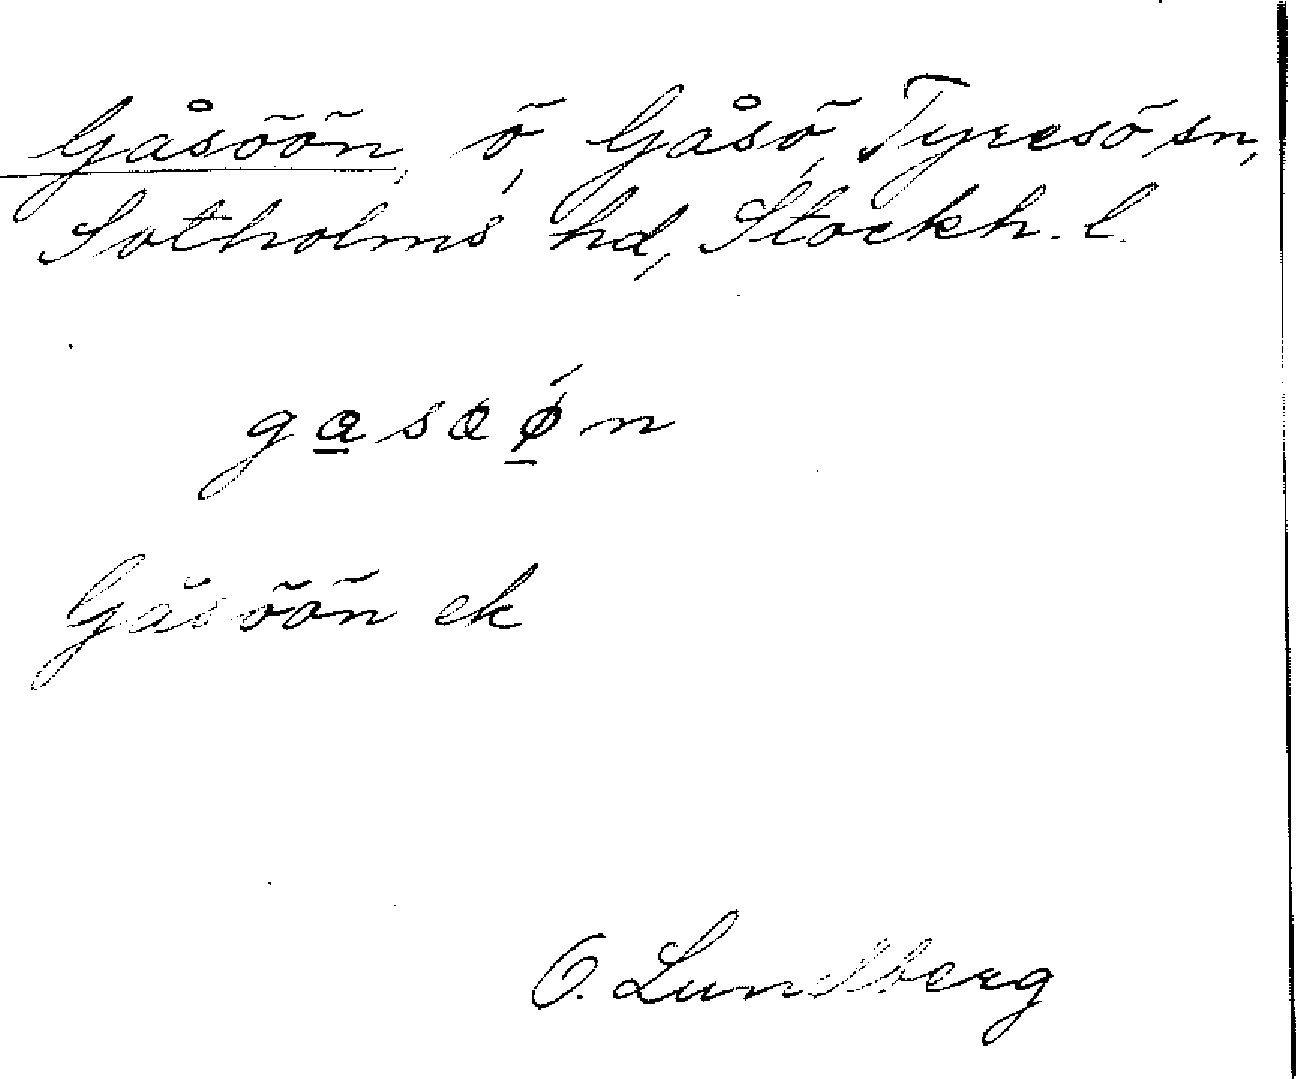 Gåsöön, ö, Gåsö, Tyresö sn,
Sotholms hd, Stockh. l.
Gåsöön ek
O. Lundberg